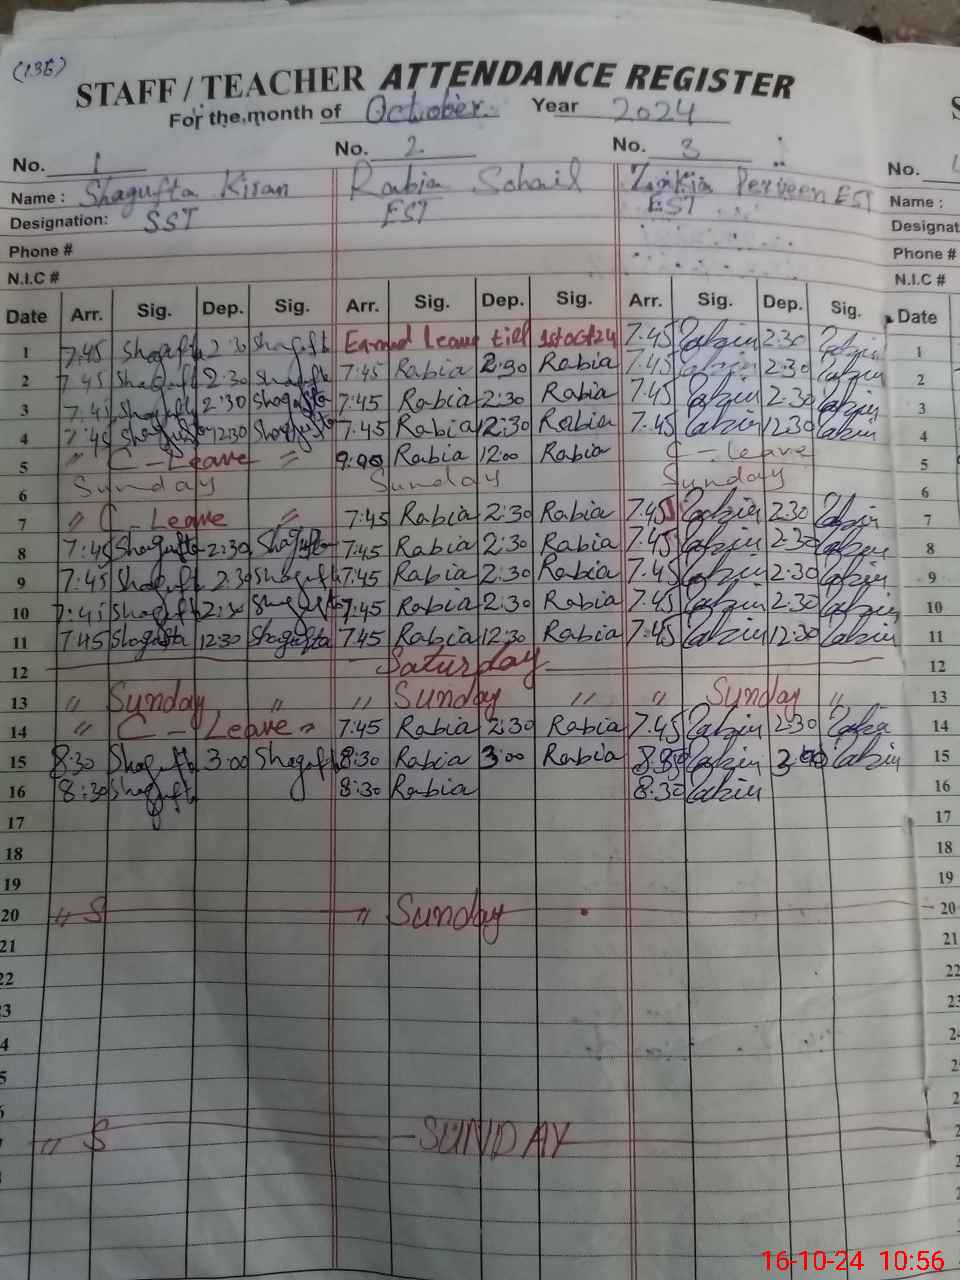 (136)
STAFF / TEACHER ATTENDANCE REGISTER
For the month of October. Year 2024
No. 1 No. 2 No. 3 No.
Name : Shagufta Kiran Rabia Sohail Zakia Perveen EST Name :
Designation: SST EST EST Designat
Phone # Phone #
N.I.C # N.I.C #
Date Arr. Sig. Dep. Sig. Arr. Sig. Dep. Sig. Arr. Sig. Dep. Sig. Date
1 7:45 Shagufta 2:30 Shagufta Earned Leave till 1st oct 24 7:45 2:30 1
2 7:45 Shagufta 2:30 Shagufta 7:45 Rabia 2:30 Rabia 7:45 2:30 2
3 7:45 Shagufta 2:30 Shagufta 7:45 Rabia 2:30 Rabia 7:45 2:30 3
4 7:45 Shagufta 12:30 Shagufta 7:45 Rabia 12:30 Rabia 7:45 12:30 4
5 " C - Leave " 9:00 Rabia 12:00 Rabia C - Leave 5
6 Sunday Sunday Sunday 6
7 " C - Leave " 7:45 Rabia 2:30 Rabia 7:45 2:30 7
8 7:45 Shagufta 2:30 Shagufta 7:45 Rabia 2:30 Rabia 7:45 2:30 8
9 7:45 Shagufta 2:30 Shagufta 7:45 Rabia 2:30 Rabia 7:45 2:30 9
10 7:45 Shagufta 2:30 Shagufta 7:45 Rabia 2:30 Rabia 7:45 2:30 10
11 7:45 Shagufta 12:30 Shagufta 7:45 Rabia 12:30 Rabia 7:45 12:30 11
12 Saturday 12
13 " Sunday " " Sunday " " Sunday " 13
14 " C - Leave " 7:45 Rabia 2:30 Rabia 7:45 2:30 14
15 8:30 Shagufta 3:00 Shagufta 8:30 Rabia 3:00 Rabia 3:00 15
16 8:30 Shagufta 8:30 Rabia 8:30 16
17 17
18 18
19 19
20 " S " Sunday 20
21 21
22 22
3 23
4 24
5 2
6 2
" S SUNDAY 2
16-10-24 10:56